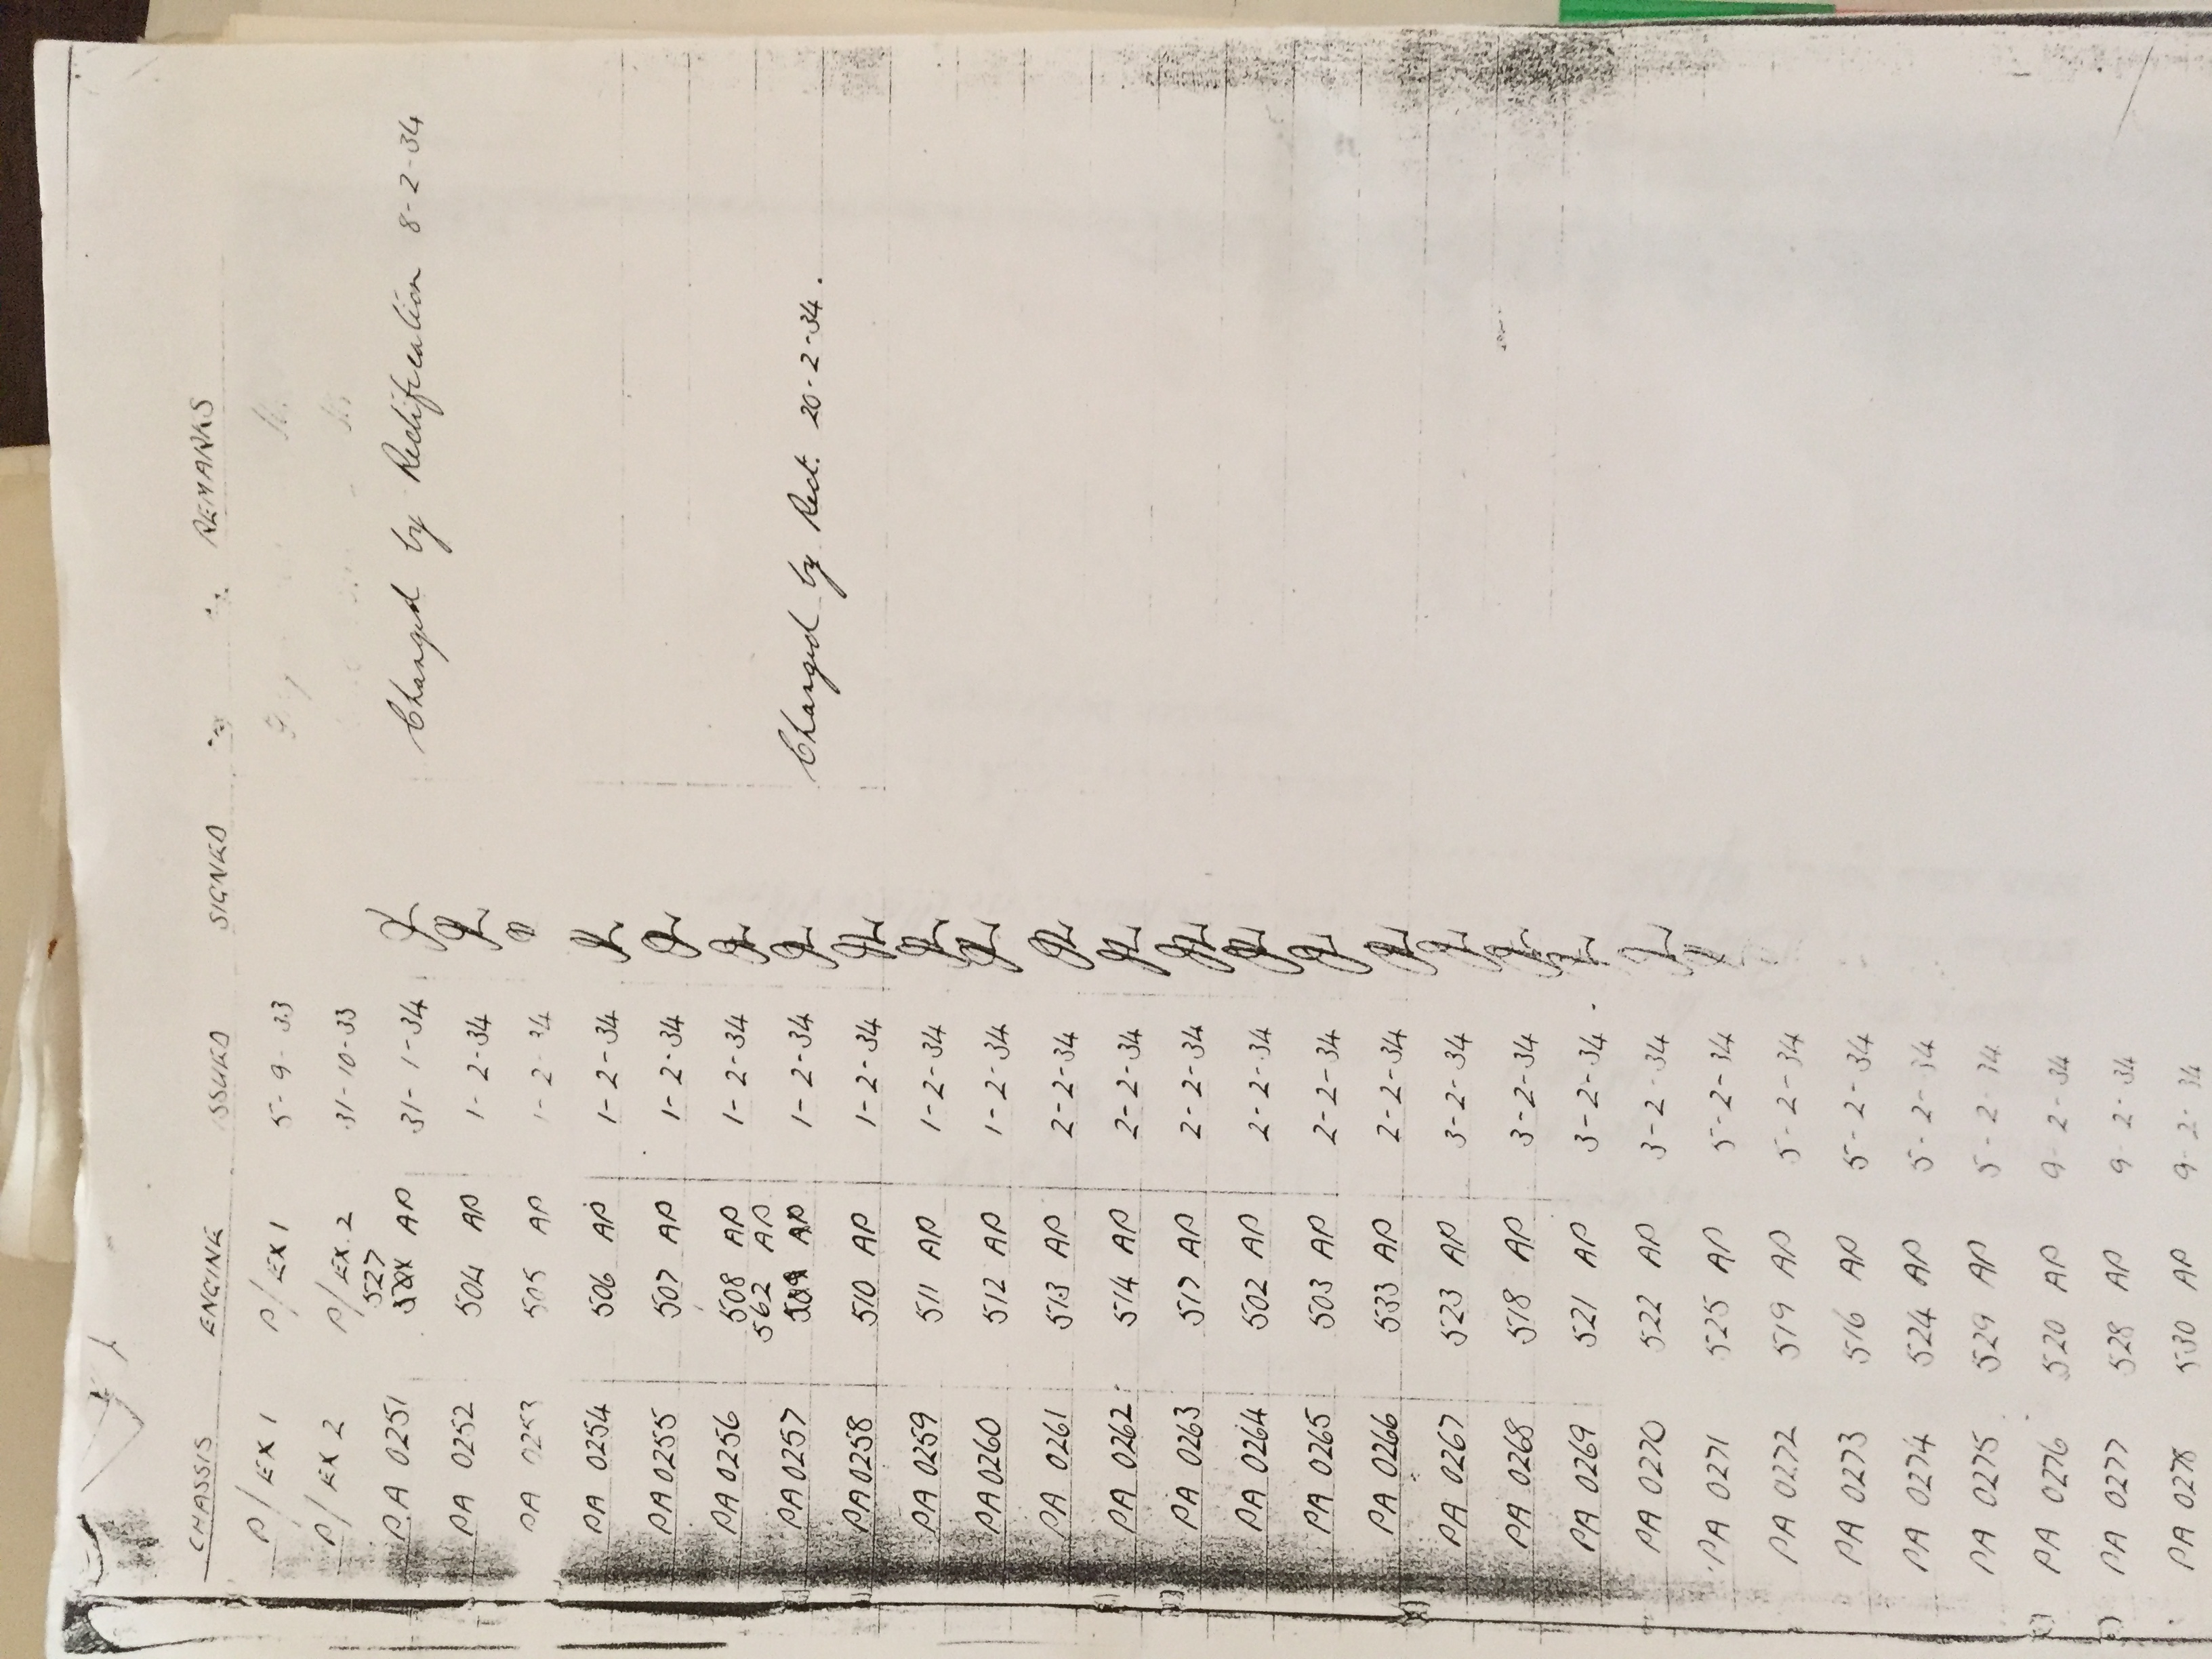 CHASSIS ENGINE ISSUED SIGNED REMARKS
P/EX 1 P/EX 1 5-9-33
P/EX 2 P/EX.2 31-10-33
527
PA 0251 AP 31-1-34 Changed by Rectification 8-2-34
PA 0252 504 AP 1-2-34
PA 0253 505 AP 1-2-34
PA 0254 506 AP 1-2-34
PA 0255 507 AP 1-2-34
PA 0256 508 AP 1-2-34
562 AP
PA 0257 509 AP 1-2-34 Changed by Rect. 20-2-34.
PA 0258 510 AP 1-2-34
PA 0259 511 AP 1-2-34
PA 0260 512 AP 1-2-34
PA 0261 513 AP 2-2-34
PA 0262 514 AP 2-2-34
PA 0263 517 AP 2-2-34
PA 0264 502 AP 2-2-34
PA 0265 503 AP 2-2-34
PA 0266 533 AP 2-2-34
PA 0267 523 AP 3-2-34
PA 0268 518 AP 3-2-34
PA 0269 521 AP 3-2-34
PA 0270 522 AP 3-2-34
PA 0271 525 AP 5-2-34
PA 0272 519 AP 5-2-34
PA 0273 516 AP 5-2-34
PA 0274 524 AP 5-2-34
PA 0275 529 AP 5-2-34
PA 0276 520 AP 9-2-34
PA 0277 528 AP 9-2-34
PA 0278 530 AP 9-2-34